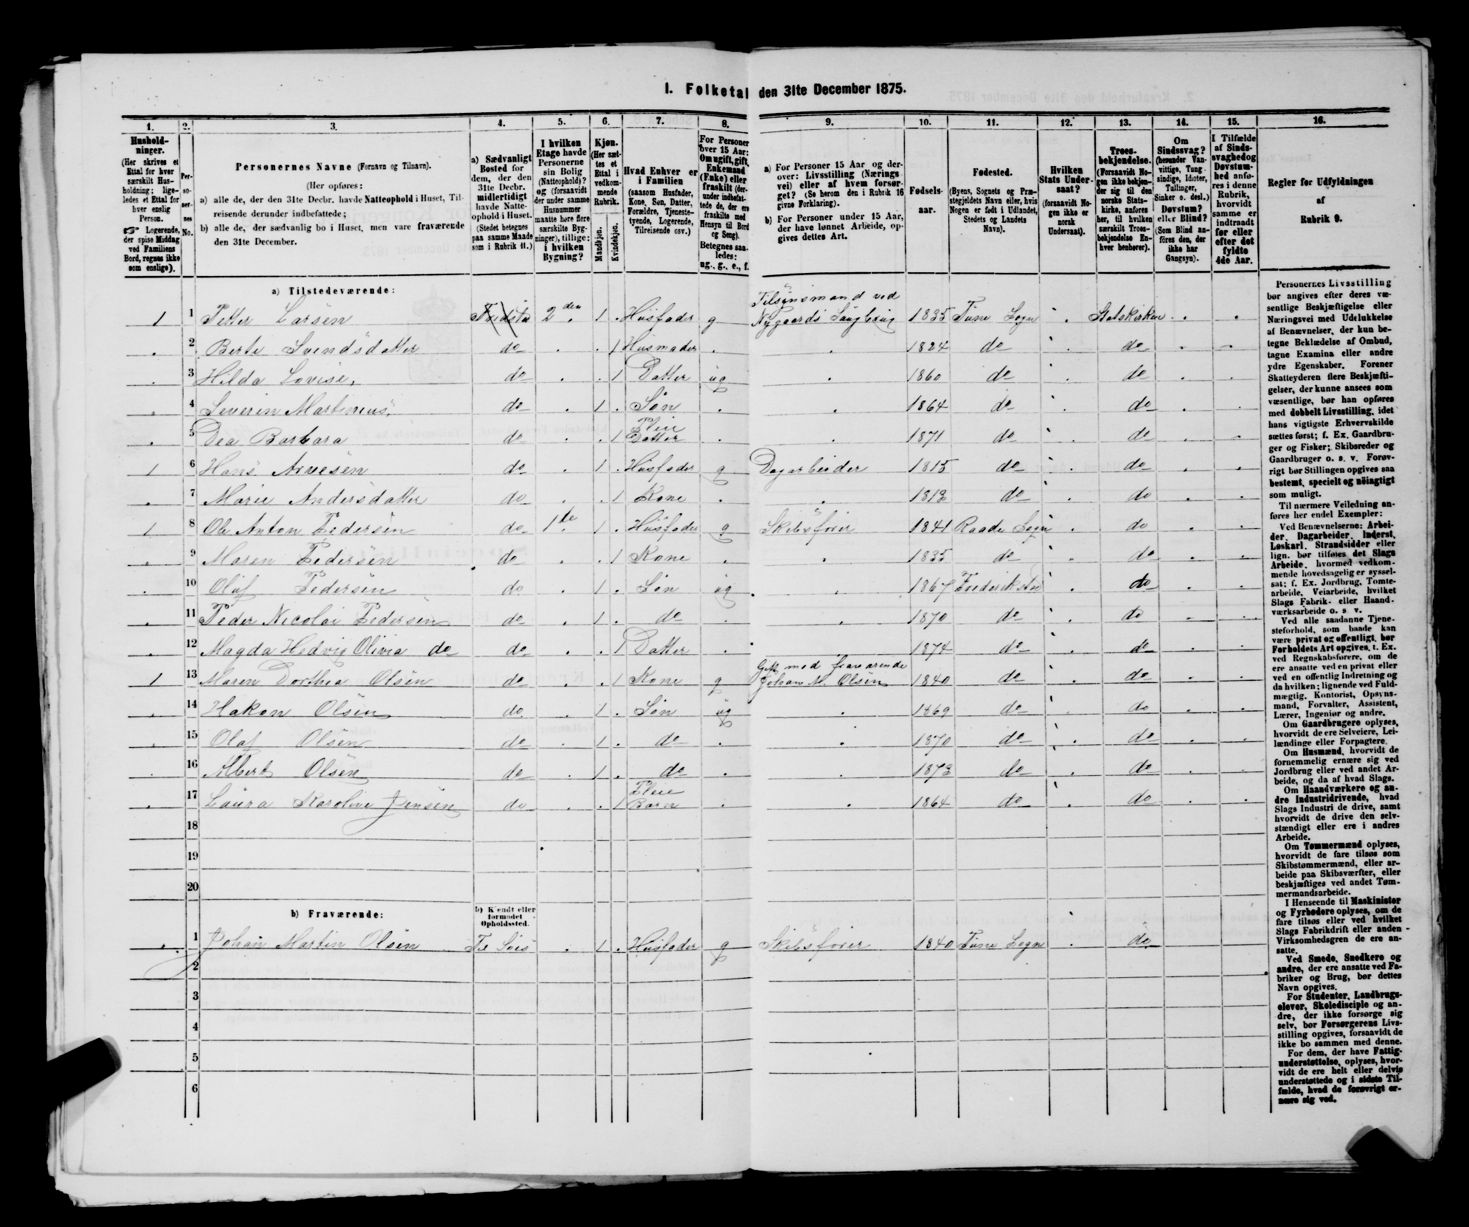 I. Folketal den 31te December 1875.
1. 2. 3. 4. 5. 6. 7. 8. 9. 10. 11. 12. 13. 14. 15. 16.
Hushold-
ninger.
(Her skrives et
Ettal for hver
særskilt Hus-
holdning; lige-
ledes et Ettal for
hver enslig
Person.
☞ Logerende,
der spise Middag
ved Familiens
Bord, regnes ikke
som enslige).
Per-
so-
ner-
nes
No.
Personernes Navne (Fornavn og Tilnavn).
(Her opføres:
a) alle de, der den 31te Decbr. havde Natteophold i Huset, Til-
reisende derunder indbefattede;
b) alle de, der sædvanlig bo i Huset, men vare fraværende
den 31te December.
a) Sædvanligt
Bosted for
dem, der den
31te Decbr.
midlertidigt
havde Natte-
ophold i Huset.
(Stedet betegnes
paa samme Maade
som i Rubrik 11.)
I hvilken
Etage havde
Personerne
sin Bolig
(Natteophold)?
og (forsaavidt
der under samme
Husnummer
maatte høre flere
særskilte Byg-
ninger), tillige:
i hvilken
Bygning?
Kjøn.
(Her sæt-
tes et
Ettal i
vedkom-
mende
Rubrik.
Mandkjøn.
Kvindekjøn.
Hvad Enhver er
i Familien
(saasom Husfader,
Kone, Søn, Datter,
Forældre, Tjeneste-
tyende, Logerende,
Tilreisende osv.)
For Personer
over 15 Aar:
Om ugift, gift,
Enkemand
(Enke) eller
fraskilt (der-
under indbefat-
tede de, der ere
fraskilte med
Hensyn til Bord
og Seng).
Betegnes saa-
ledes:
ug., g., e., f.
a) For Personer 15 Aar og der-
over: Livsstilling (Nærings-
vei) eller af hvem forsør-
get? (Se herom den i Rubrik 16
givne Forklaring).
b) For Personer under 15 Aar,
der have lønnet Arbeide, op-
gives dettes Art.
Fødsels-
aar.
Fødested.
(Byens, Sognets og Præ-
stegjeldets Navn eller, hvis
Nogen er født i Udlandet,
Stedets og Landets
Navn).
Hvilken
Stats Under-
saat?
(forsaavidt No-
gen ikke er
norsk
Undersaat).
Troes-
bekjendelse.
(Forsaavidt No-
gen ikke bekjen-
der sig til den
norske Stats-
kirke, anføres
her, til hvilken
særskilt Troes-
bekjendelse En-
hver henhører).
Om
Sindssvag?
(herunder Van-
vittige, Tung-
sindige, Idioter,
Tullinger,
Sinker o. desl.)
Døvstum?
eller Blind?
(Som Blind an-
føres den, der
ikke har
Gangsyn).
I Tilfælde
af Sinds-
svaghedog
Døvstum-
hed anfø-
res i denne
Rubrik,
hvorvidt
samme er
indtraadt
før eller
efter det
fyldte
4de Aar.
Regler for Udfyldningen
af
Rubrik 9.
a) Tilstedeværende:
1 1 Petter Larsen Fredstad 2den 1 Husfader g Tilsynsmand ved Nygaards Saugbrug 1835 Tune Sogn Statskirken
2 Berte Svendsdatter do 1 Husmoder 1824 do do
3 Hilda Lovise do 1 Datter ug 1860 do do
4 Severin Martinius do 1 Søn 1864 do do
5 Dea Barbara do 1 Pleie Datter 1871 do do
1 6 Hans Arvesen do 1 Husfader g Dagarbeider 1815 do do
7 Marie Andersdatter do 1 Kone 1812 do do
1 8 Ole Anton Pedersen do 1te 1 Husfader g Skibsfører 1841 Raade Sogn do
9 Maren Pedersen do 1 Kone 1835 do do
10 Olaf Pedersen do 1 Søn ug 1867 Frederikstad do
11 Peder Nicolai Pedersen do 1 do 1870 do do
12 Magda Hedvig Olivia do do 1 Datter 1874 do do
1 13 Maren Dorthea Olsen do 1 Kone g Gift med fraværende Johan M. Olsen 1840 do do
14 Hakon Olsen do 1 Søn ug 1869 do do
15 Olaf Olsen do 1 do 1870 do do
16 Albert Olsen do 1 do 1873 do do
17 Laura Karoline Jensen do 1 Pleie Barn 1864 do do
18
19
20
b) Fraværende:
b) Kjendt eller
formodet
Opholdssted.
1 Johan Martin Olsen Til Søes 1 Husfader g Skibsfører 1840 Tune Sogn do
2
3
4
5
6
Personernes Livsstilling
bør angives efter deres væ-
sentlige Beskjæftigelse eller
Næringsvei med Udelukkelse
af Benævnelser, der kun be-
tegne Beklædelse af Ombud,
tagne Examina eller andre
ydre Egenskaber. Forener
Skatteyderen flere Beskjæfti-
gelser, der kunne ansees som
væsentlige, bør han opføres
med dobbelt Livsstilling, idet
hans vigtigste Erhvervskilde
sættes først; f. Ex. Gaardbru-
ger og Fisker; Skibsreder og
Gaardbruger o. s. v. Forøv-
rigt bør Stillingen opgives saa
bestemt, specielt og nøiagtigt
som muligt.
Til nærmere Veiledning an-
føres her endel Exempler:
Ved Benævnelserne: Arbei-
der, Dagarbeider, Inderst,
Løskarl, Strandsidder eller
lign. bør tilføies det Slags
Arbeide, hvormed vedkom-
mende hovedsagelig er syssel-
sat; f. Ex. Jordbrug, Tomte-
arbeide, Veiarbeide, hvilket
Slags Fabrik- eller Haand-
værksarbeide o. s. v.
Ved alle saadanne Tjene-
steforhold, som baade kan
være privat og offentligt, bør
Forholdets Art opgives, t. Ex.
ved Regnskabsførere, om de
ere ansatte ved en privat eller
ved en offentlig Indretning og
da hvilken; lignende ved Fuld-
mægtig, Kontorist, Opsyns-
mand, Forvalter, Assistent,
Lærer, Ingeniør og andre.
Om Gaardbrugere oplyses,
hvorvidt de ere Selveiere, Lei-
lændinge eller Forpagtere.
Om Husmænd, hvorvidt de
fornemmelig ernære sig ved
Jordbrug eller ved andet Ar-
beide, og da af hvad Slags.
Om Haandværkere og an-
dre Industridrivende, hvad
Slags Industri de drive, samt
hvorvidt de drive den selv-
stændigt eller ere i andres
Arbeide.
Om Tømmermænd oplyses,
hvorvidt de fare tilsøs som
Skibstømmermænd, eller ar-
beide paa Skibsværfter, eller
beskjæftiges ved andet Tøm-
mermandsarbeide.
I Henseende til Maskinister
og Fyrbødere oplyses, om de
fare tilsøs eller ved hvilket
Slags Fabrikdrift eller anden
Virksomhedsgren de ere an-
satte.
Ved Smede, Snedkere og
andre, der ere ansatte ved Fa-
briker og Brug, bør dettes
Navn opgives.
For Studenter, Landbrugs-
elever, Skoledisciple og an-
dre, der ikke forsørge sig
selv, bør Forsørgerens Livs-
stilling opgives, forsaavidt de
ikke bo sammen med denne.
For dem, der have Fattig-
understøttelse, oplyses, hvor-
vidt de ere helt eller delvis
understøttede og i sidste Til-
fælde, hvad de forøvrigt er-
nære sig ved.